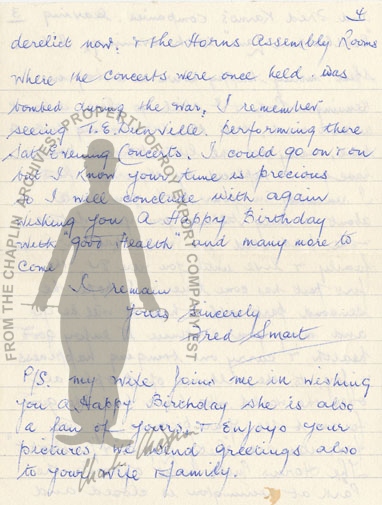 4
derelict now. & the Horns Assembly Rooms
where the concerts were once held. was
bombed during the War. I remember
seeing T.E. Dunville performing there
Sat Evening Concerts. I could go on & on
but I know your time is precious
so I will conclude with again
Wishing you A Happy Birthday
with "good Health" and many more to
come
I remain
yours sincerely
Fred Smart
P/S. my wife joins me in wishing
you a Happy Birthday she is also
a fan of yours & Enjoys your
pictures, we send greetings also
to your wife & family.
FROM THE CHAPLIN ARCHIVES. PROPERTY OF ROY EXPORT COMPANY EST
Charlie Chaplin